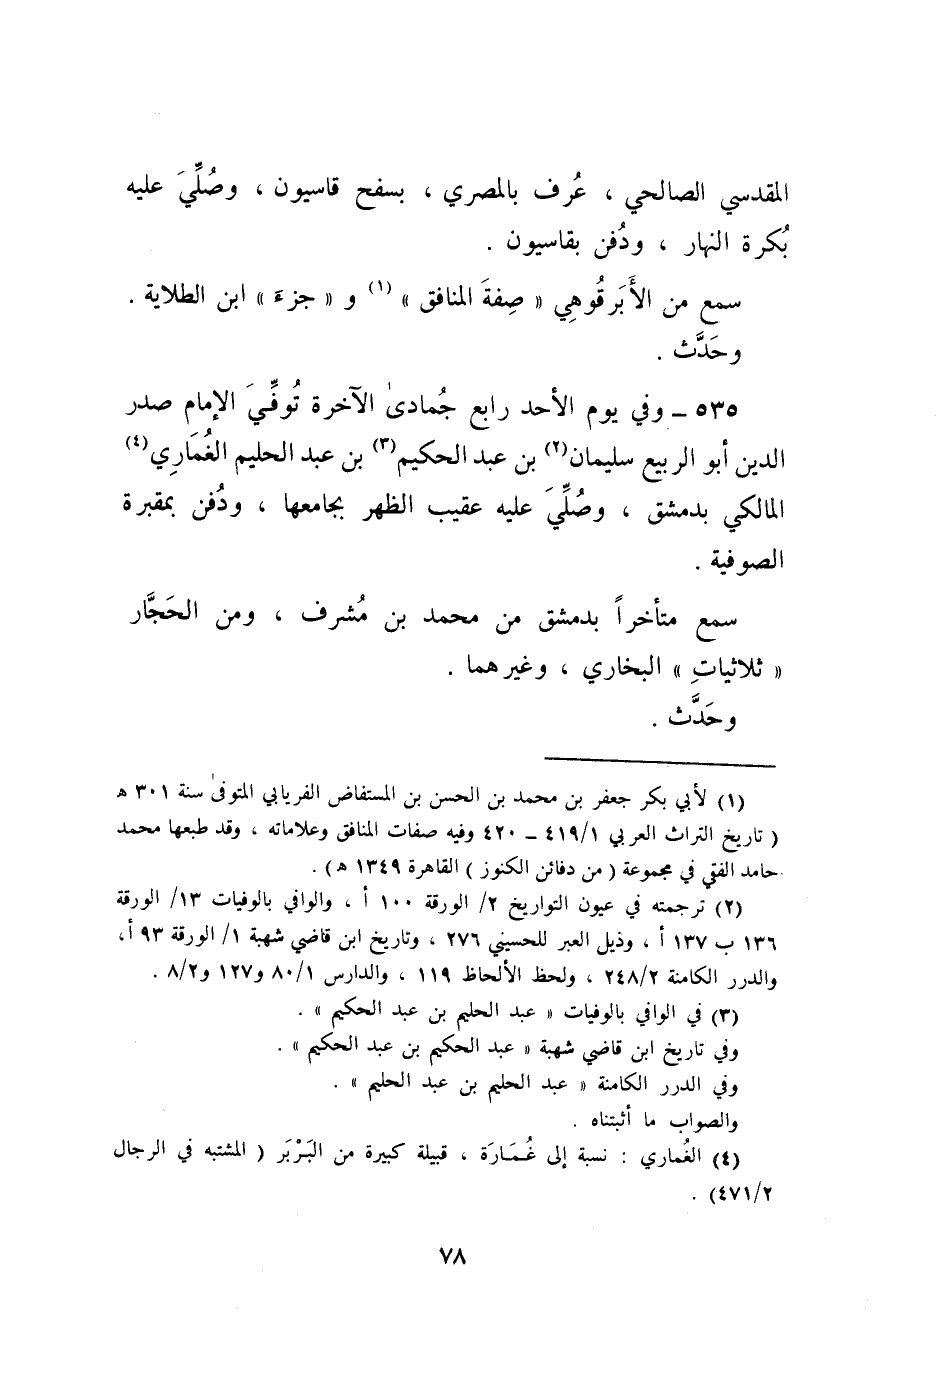 المقدسي الصالحي ، عُرف بالمصري ، بسفح قاسيون ، وصُلِّيَ عليه
بُكرة النهار ، ودُفن بقاسيون .
سمع من الأَبَرقُوهِي « صِفةَ المنافق » (١) و « جزءَ » ابن الطلاية .
وحَدَّث .
٥٣٥ ــ وفي يوم الأحد رابع جُمادىٰ الآخرة تُوفِّيَ الإمام صدر
الدين أبو الربيع سليمان(٢) بن عبد الحكيم(٣) بن عبد الحليم الغُمَارِي(٤)
المالكي بدمشق ، وصُلِّيَ عليه عقيب الظهر بجامعها ، ودُفن بمقبرة
الصوفية .
سمع متأخراً بدمشق من محمد بن مُشرف ، ومن الحَجَّار
« ثلاثياتِ » البخاري ، وغيرهما .
وحَدَّث .
(١) لأبي بكر جعفر بن محمد بن الحسن بن المستفاض الفريابي المتوفىٰ سنة ٣٠١ هـ
( تاريخ التراث العربي ٤١٩/١ ــ ٤٢٠ وفيه صفات المنافق وعلاماته ، وقد طبعها محمد
حامد الفقي في مجموعة ( من دفائن الكنوز ) القاهرة ١٣٤٩ هـ ) .
(٢) ترجمته في عيون التواريخ ٢/ الورقة ١٠٠ أ ، والوافي بالوفيات ١٣/ الورقة
١٣٦ ب ١٣٧ أ ، وذيل العبر للحسيني ٢٧٦ ، وتاريخ ابن قاضي شهبة ١/ الورقة ٩٣ أ،
والدرر الكامنة ٢٤٨/٢ ، ولحظ الألحاظ ١١٩ ، والدارس ٨٠/١ و١٢٧ و٨/٢ .
(٣) في الوافي بالوفيات « عبد الحليم بن عبد الحكيم » .
وفي تاريخ ابن قاضي شهبة « عبد الحكيم بن عبد الحكيم » .
وفي الدرر الكامنة « عبد الحليم بن عبد الحليم » .
والصواب ما أثبتناه .
(٤) الغُماري : نسبة إلى غُمَارَة ، قبيلة كبيرة من البَرْبَر ( المشتبه في الرجال
٤٧١/٢) .
٧٨